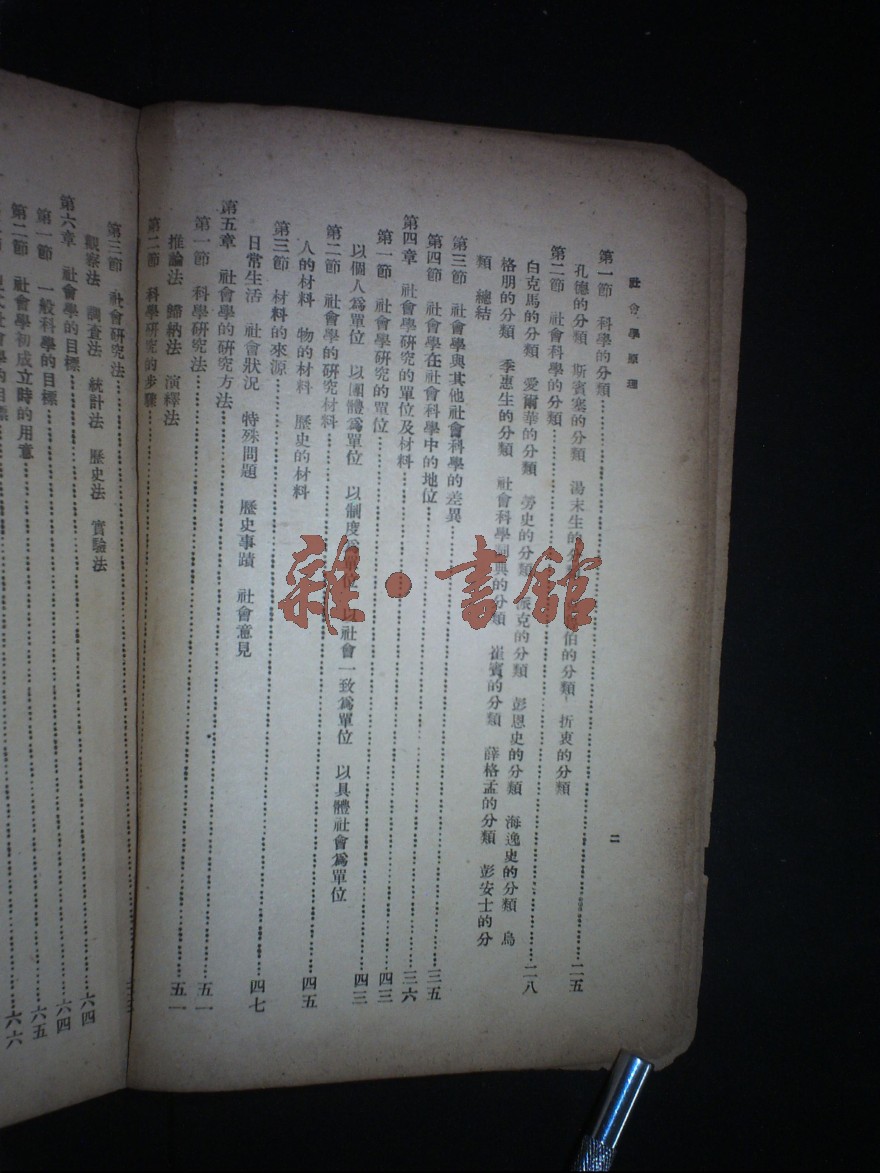 社會學原理
二
第一節 科學的分類……二五
孔德的分類 斯賓塞的分類 湯末生的分類 伯的分類 折衷的分類
第二節 社會科學的分類……二八
白克馬的分類 愛爾華的分類 勞史的分類 派克的分類 彭恩史的分類 海逸史的分類 烏
格朋的分類 季惠生的分類 社會科學詞典的分類 崔賓的分類 薛格孟的分類 彭安士的分
類 總結
第三節 社會學與其他社會科學的差異……三五
第四節 社會學在社會科學中的地位……三六
第四章 社會學研究的單位及材料……四三
第一節 社會學研究的單位……四三
以個人爲單位 以團體爲單位 以制度爲單位 以社會一致爲單位 以具體社會爲單位
第二節 社會學的研究材料……四五
人的材料 物的材料 歷史的材料
第三節 材料的來源……四七
日常生活 社會狀況 特殊問題 歷史事蹟 社會意見
第五章 社會學的研究方法……五一
第一節 科學研究法……五一
推論法 歸納法 演釋法
第二節 科學研究的步驟……
第三節 社會研究法……
觀察法 調查法 統計法 歷史法 實驗法
第六章 社會學的目標……六四
第一節 一般科學的目標……六四
第二節 社會學初成立時的用意……六五
六六
雜·書館